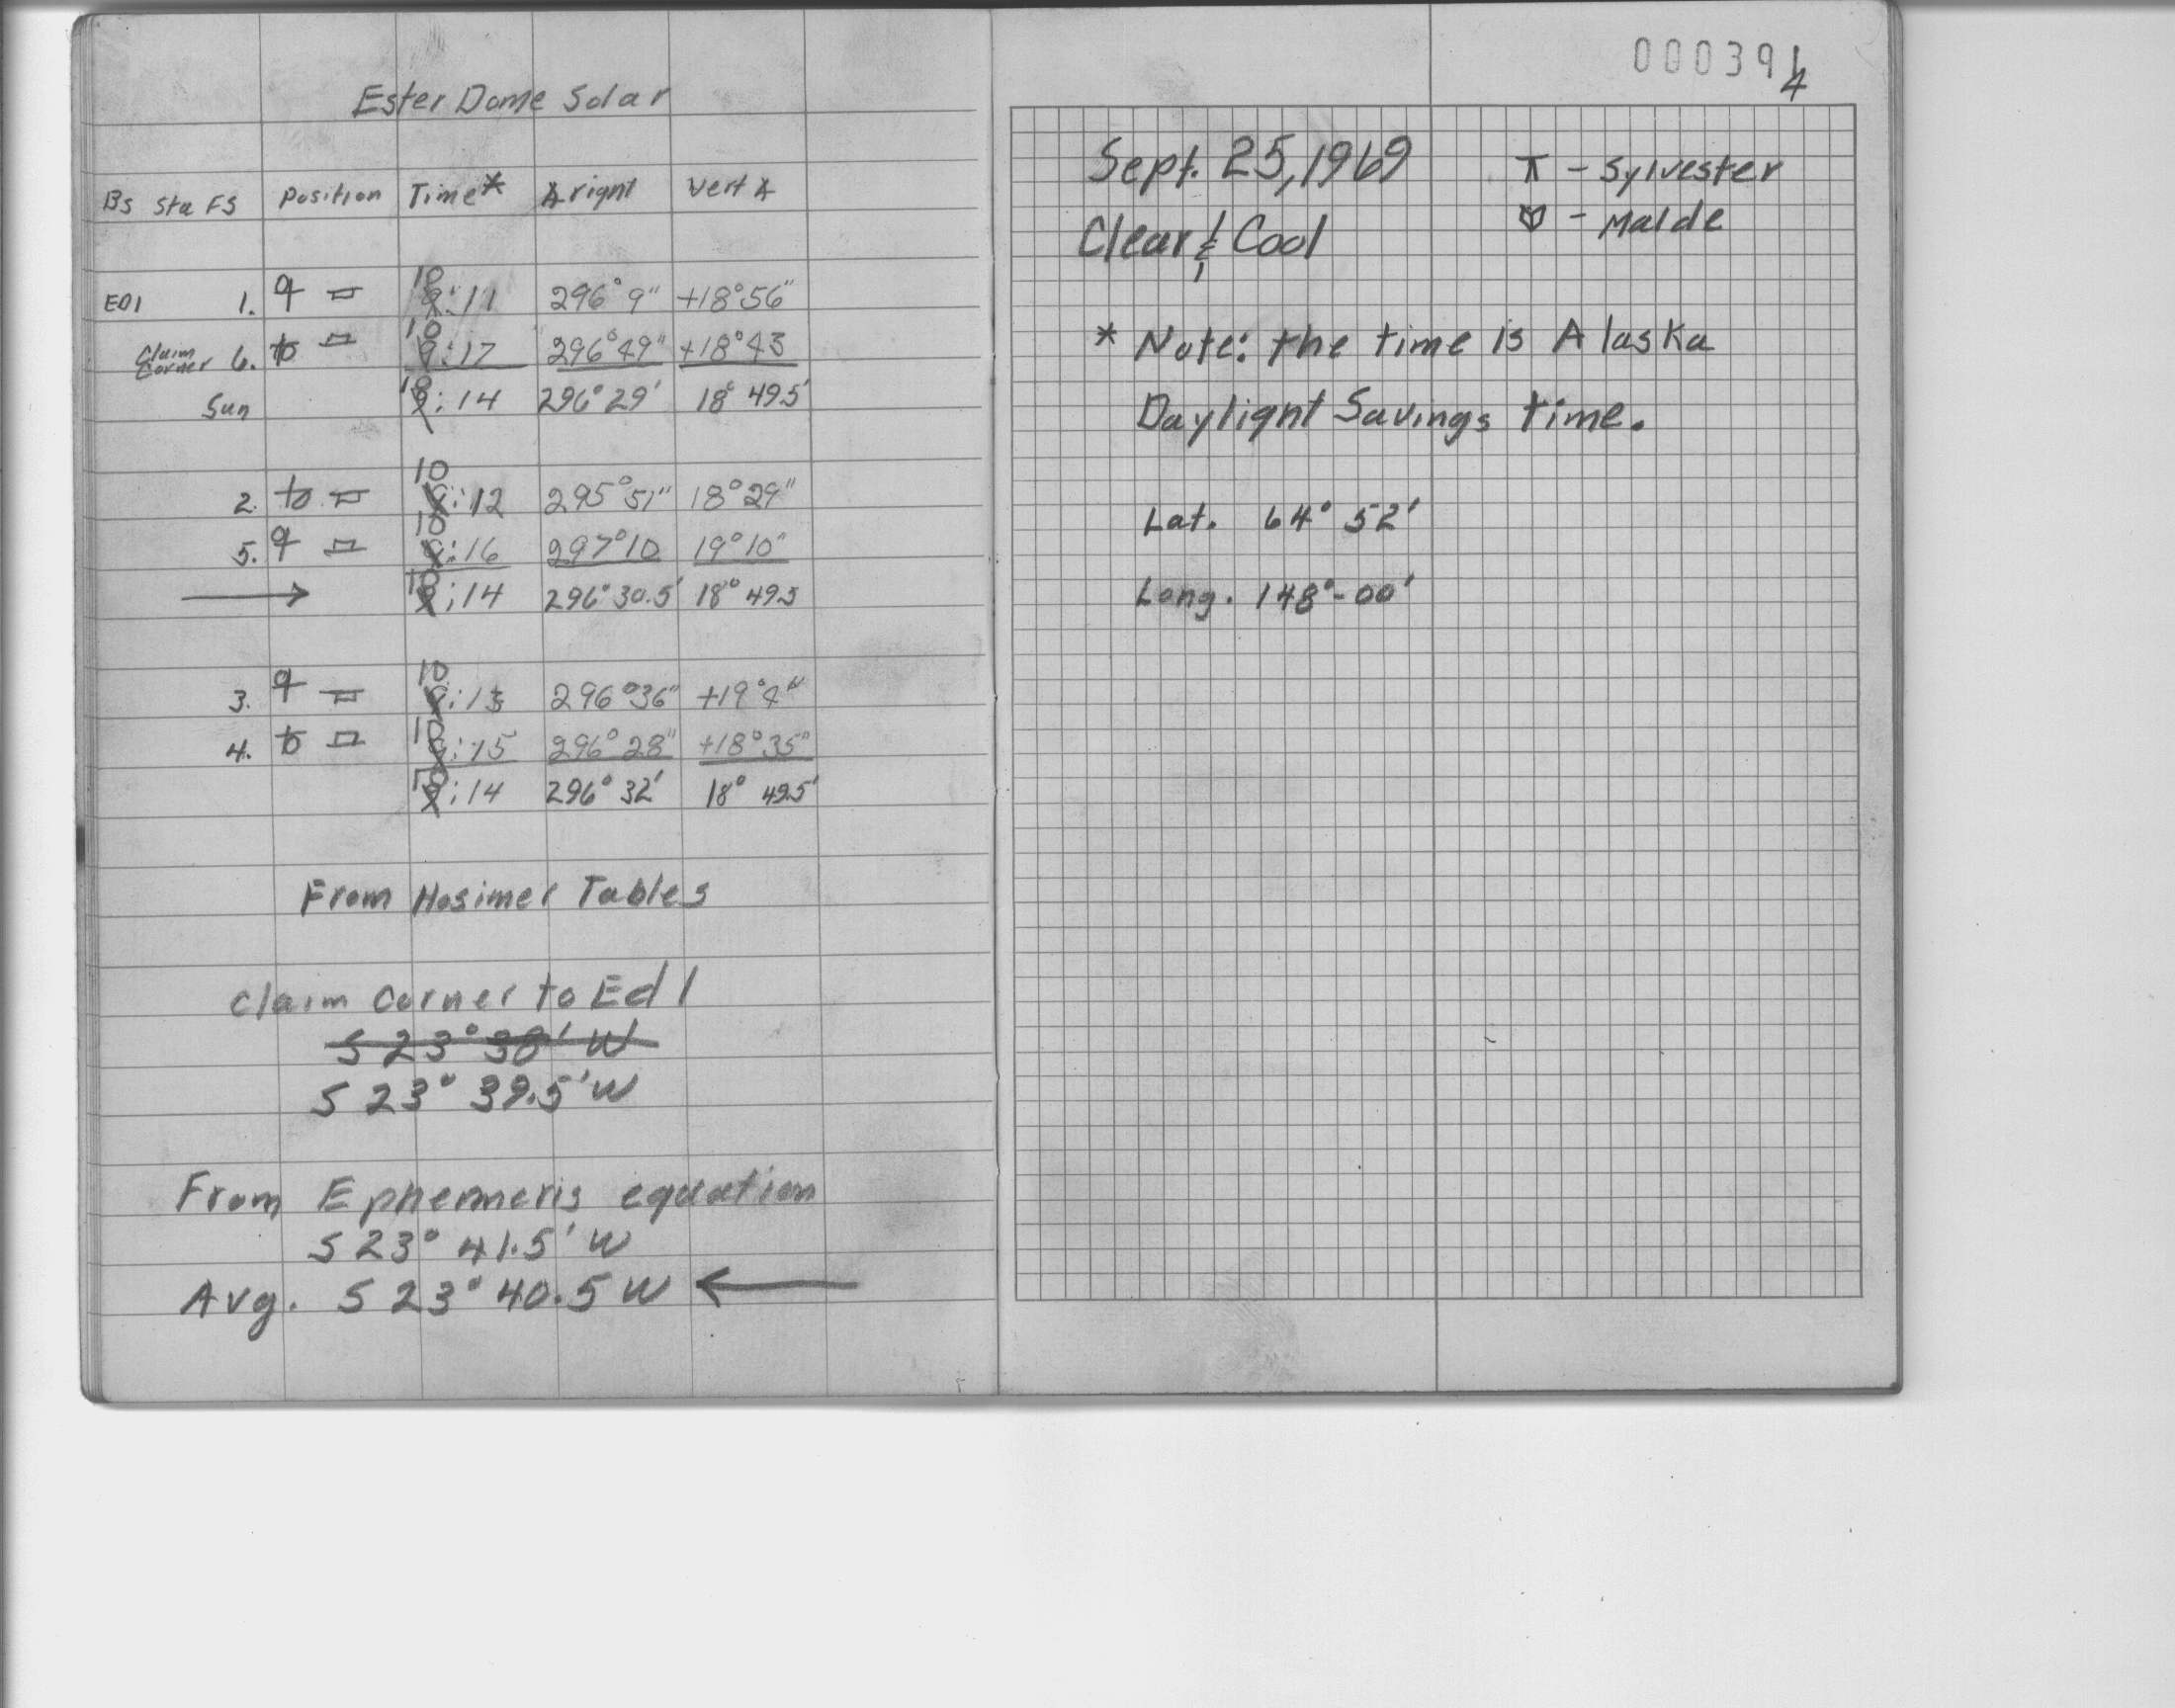 Ester Dome Solar
Bs Sta FS Position Time* ∡ right Vert ∡
ED1 1. 10 9:11 296°9" +18°56"
Claim Corner 6. 10 9:17 296°49" +18°43
Sun 10 9:14 296°29' 18° 49.5'
2. 10 9:12 295°51" 18°29"
5. 10 9:16 297°10 19°10"
→ 10 9:14 296°30.5' 18° 49.5
3. 10 9:13 296°36" +19°4"
4. 10 9:15 296°28" +18°35"
10 9:14 296°32' 18° 49.5'
From Hosimer Tables
Claim Corner to Ed 1
S 23° 38' W
S 23° 39.5' W
From Ephemeris equation
S 23° 41.5' W
Avg. S 23° 40.5 W ←
000391
4
Sept. 25, 1969
⊼ - Sylvester
Clear & Cool
- Malde
* Note: the time is Alaska
Daylight Savings time.
Lat. 64° 52'
Long. 148°-00'